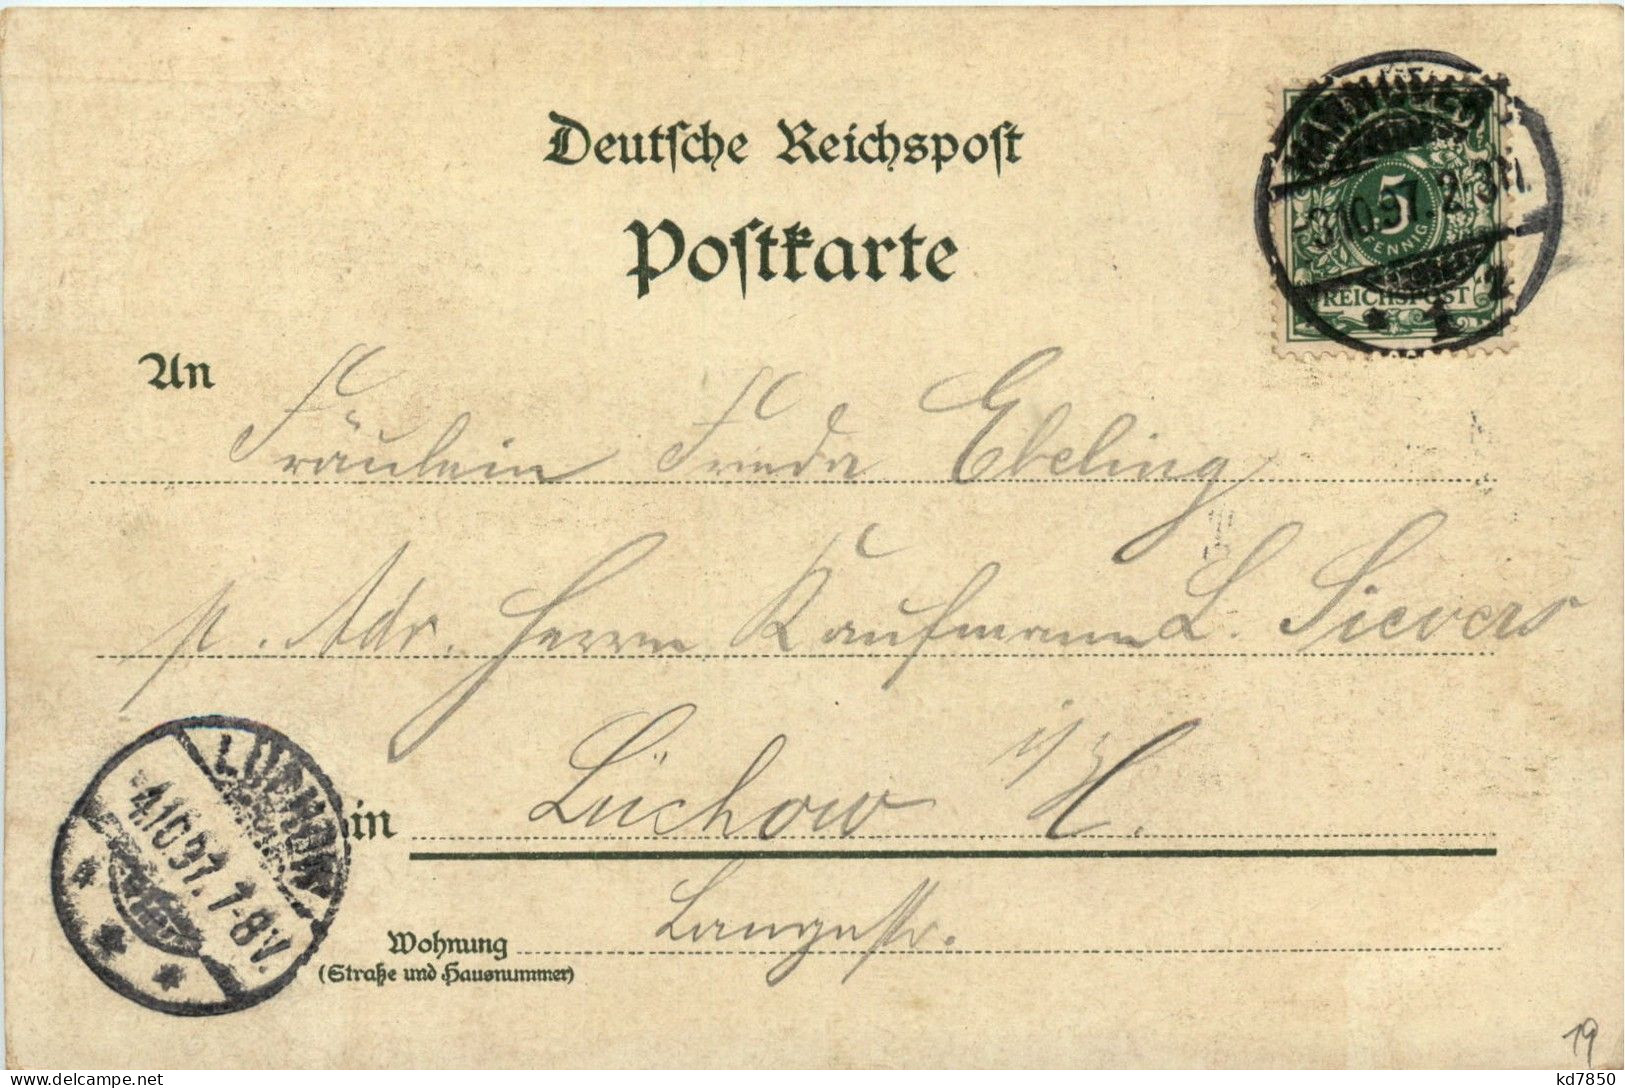 Deutsche Reichspost
Postkarte
HANNOVER
-3.10.97. 2-3N.
* 1 z
5
PFENNIG
REICHSPOST
An
Fräulein Frieda Ebeling
p. Adr. Herrn Kaufmann L. Sievers
in Lüchow i/H.
LÜCHOW
-4.10.97. 7-8V.
* * *
Wohnung Langestr.
(Straße und Hausnummer)
19
kd7850